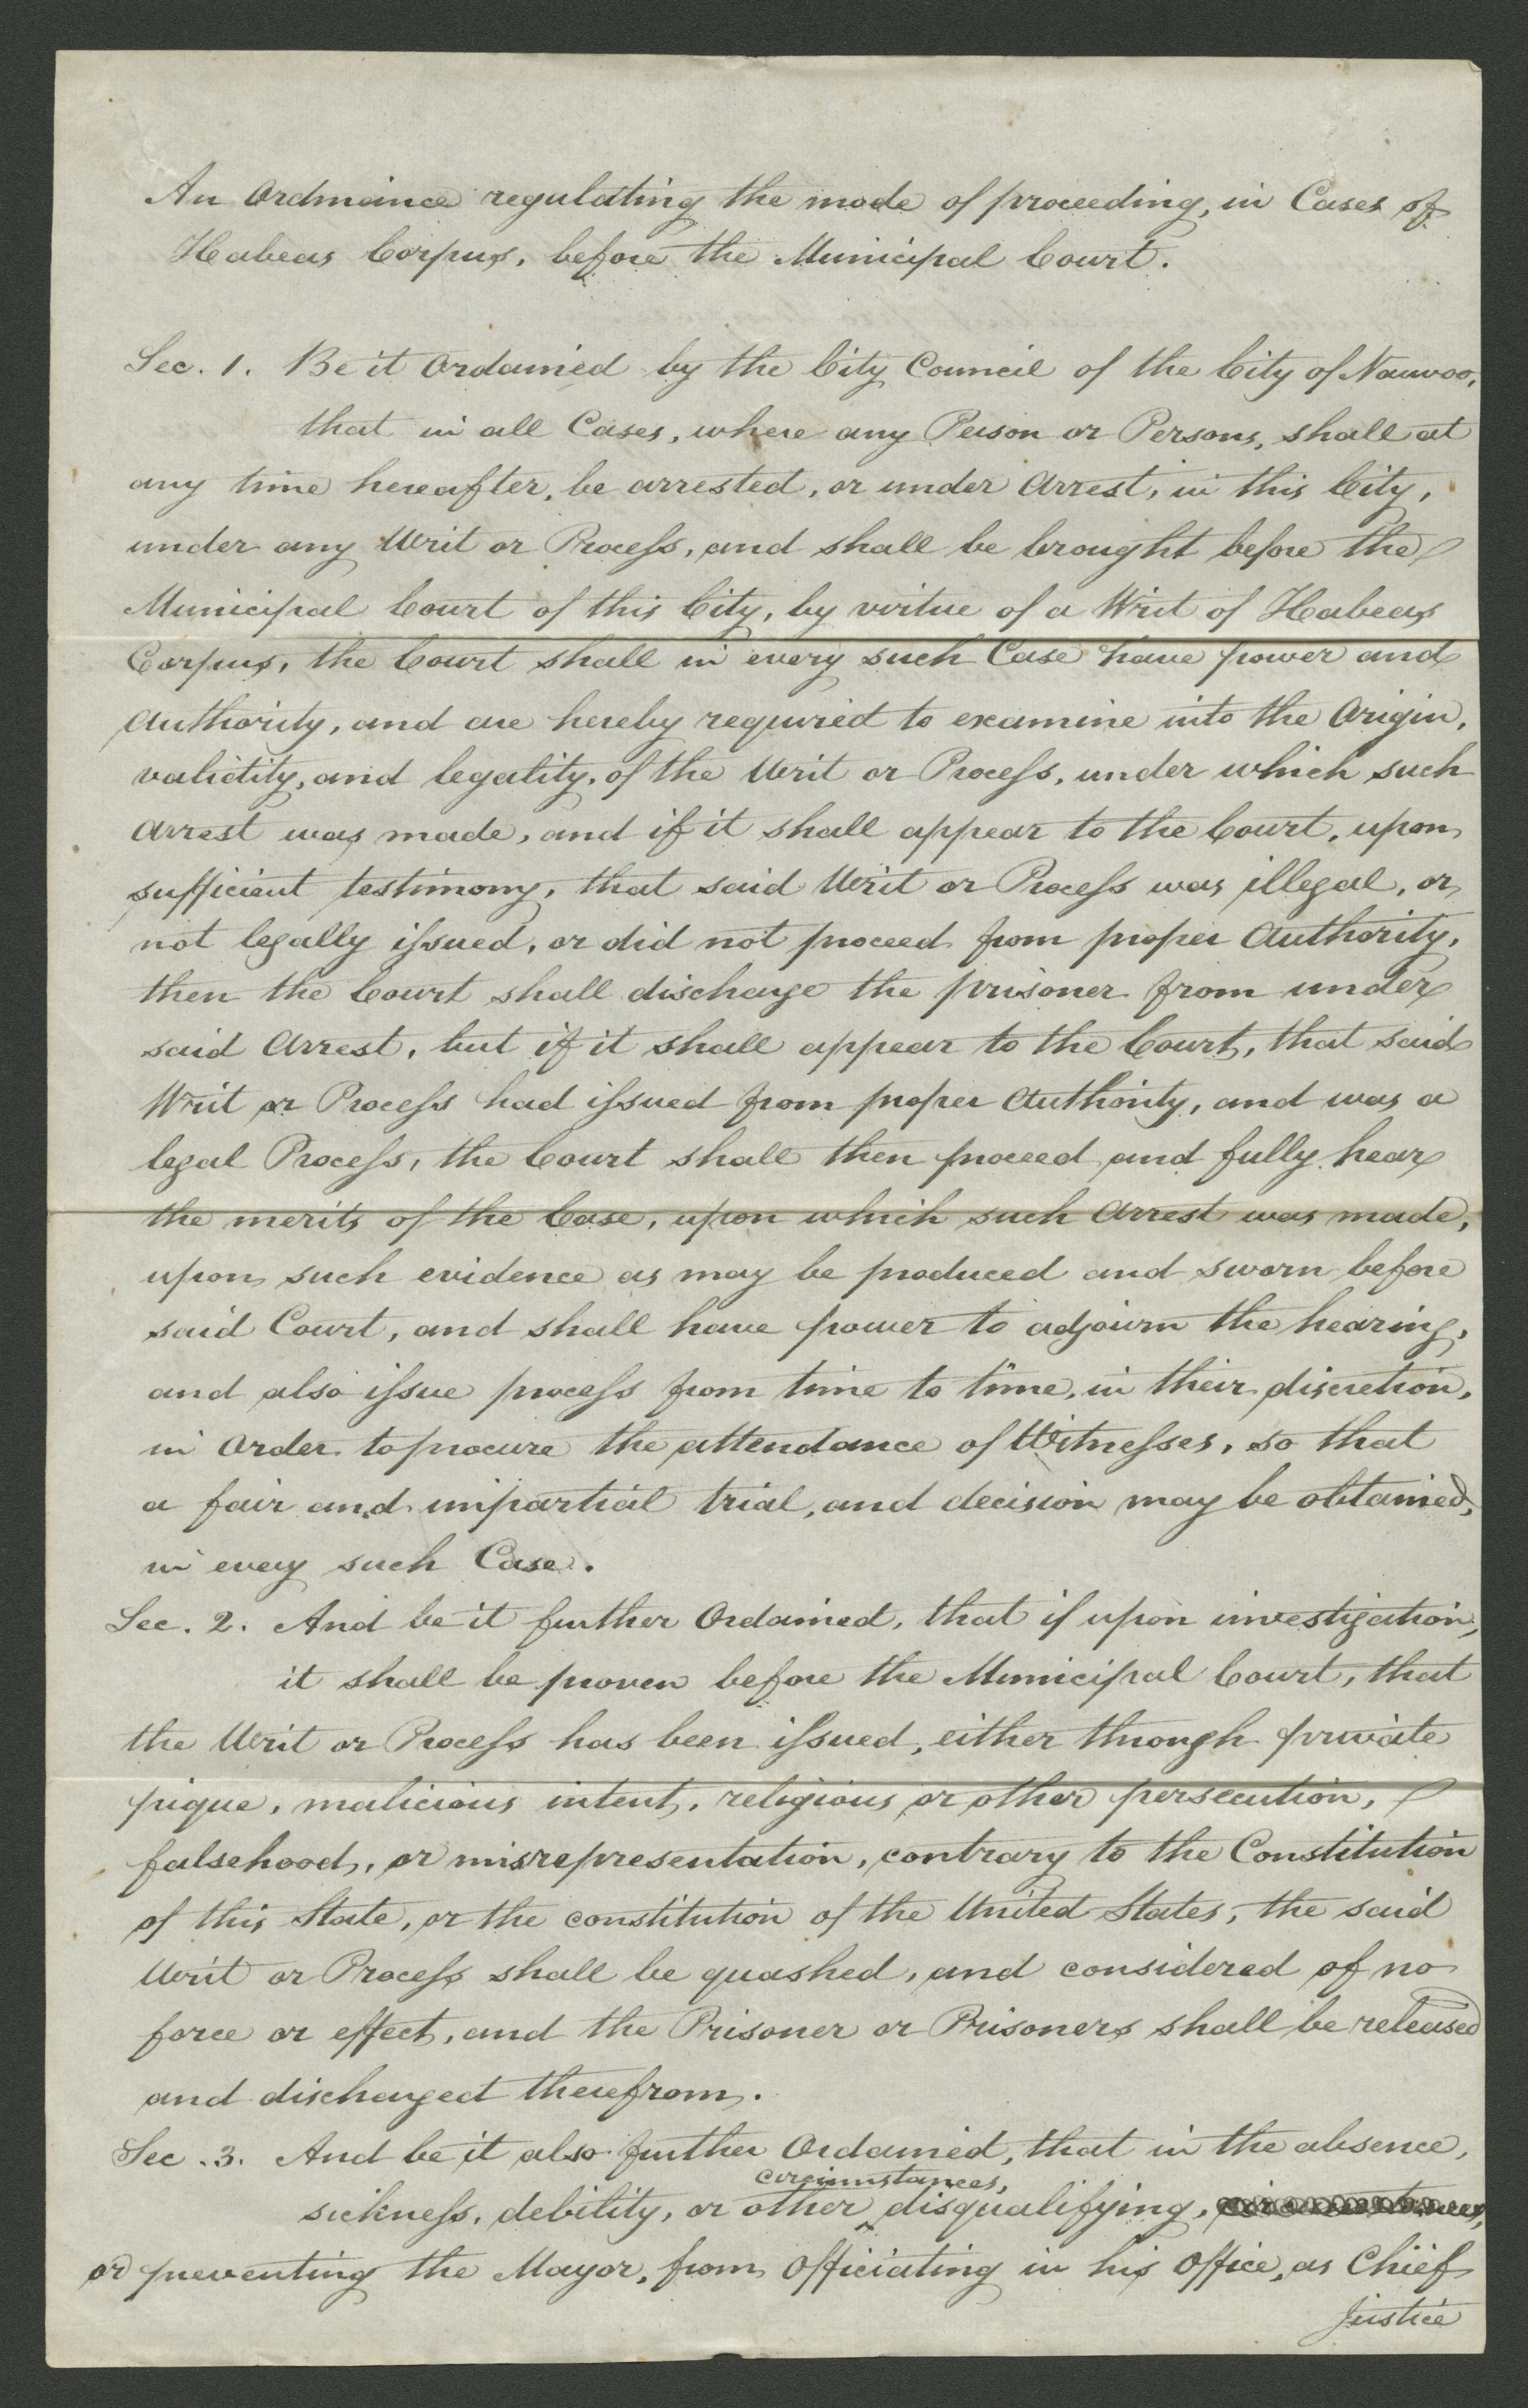 An Ordinance regulating the mode of proceeding, in Cases of
Habeas Corpus, before the Municipal Court.
Sec. 1. Be it Ordained by the City Council of the City of Nauvoo,
that in all Cases, where any Person or Persons, shall at
any time hereafter, be arrested, or under Arrest, in this City,
under any Writ or Process, and shall be brought before the
Municipal Court of this City, by virtue of a Writ of Habeas
Corpus, the Court shall in every such Case have power and
Authority, and are hereby required to examine into the Origin,
validity, and legality, of the Writ or Process, under which such
Arrest was made, and if it shall appear to the Court, upon
sufficient testimony, that said Writ or Process was illegal, or
not legally issued, or did not proceed from proper Authority,
then the Court shall discharge the prisoner from under
said Arrest, but if it shall appear to the Court, that said
Writ or Process had issued from proper Authority, and was a
legal Process, the Court shall then proceed and fully hear
the merits of the Case, upon which such Arrest was made,
upon such evidence as may be produced and sworn before
said Court, and shall have power to adjourn the hearing,
and also issue process from time to time, in their discretion,
in Order to procure the attendance of Witnesses, so that
a fair and impartial trial, and decision may be obtained,
in every such Case.
Sec. 2. And be it further Ordained, that if upon investigation,
it shall be proven before the Municipal Court, that
the Writ or Process has been issued, either through private
pique, malicious intent, religious or other persecution,
falsehood, or misrepresentation, contrary to the Constitution
of this State, or the constitution of the United States, the said
Writ or Process shall be quashed, and considered of no
force or effect, and the Prisoner or Prisoners shall be released
and discharged therefrom.
Sec. 3. And be it also further Ordained, that in the absence,
circumstances,
sickness, debility, or other disqualifying, circumstances,
or preventing the Mayor, from Officiating in his Office, as Chief
Justice